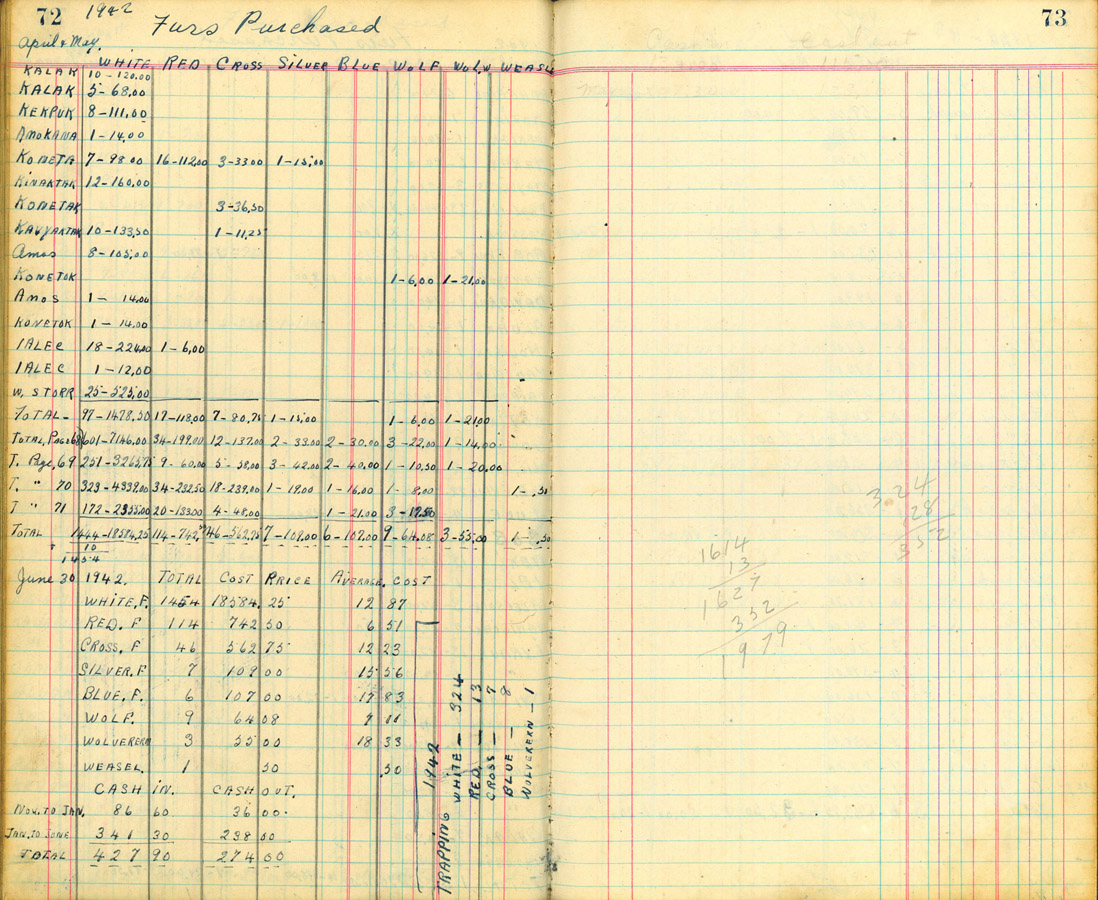 72 1942 Furs Purchased
April & May.
WHITE RED CROSS SILVER BLUE WOLF WOLV. WEASL
KALAK 10-120.00
KALAK 5-68.00
KEKPUK 8-111.00
AMOKANA 1-14.00
KOMETA 7-98.00 16-112.00 3-33.00 1-15.00
KINAKTAK 12-160.00
KOMETAK 3-36.50
KAVYAKTAK 10-133.50 1-11.25
Amos 8-105.00
KONETOK 1-6.00 1-21.00
AMOS 1-14.00
KONETOK 1-14.00
IALEC 18-224.00 1-6.00
IALEC 1-12.00
W. STORR 25-525.00
TOTAL- 97-1478.50 17-118.00 7-80.75 1-15.00 1-6.00 1-21.00
TOTAL, Page 68 601-7146.00 34-199.00 12-137.00 2-33.00 2-30.00 3-22.00 1-14.00
T. Page, 69 251-3265.75 9-60.00 5-58.00 3-42.00 2-40.00 1-10.50 1-20.00
T. " 70 323-4339.00 34-232.50 18-239.00 1-19.00 1-16.00 1-8.00 1-.50
T " 71 172-2355.00 20-133.00 4-48.00 1-21.00 3-17.50
TOTAL 1444-18584.25 114-742.50 46-562.75 7-109.00 6-107.00 9-64.08 3-55.00 1-.50
10
1454
June 30 1942. TOTAL COST PRICE AVERAGE. COST
WHITE.F. 1454 18584.25 12 87
RED. F 114 742 50 6 51
CROSS. F 46 562 75 12 23
SILVER.F 7 109 00 15 56
BLUE. F. 6 107 00 17 83
WOLF. 9 64 08 7 11
WOLVERERN 3 55 00 18 33
WEASEL. 1 50 .50
CASH IN. CASH OUT.
NOV. TO JAN. 86 60 36 00.
JAN. TO JUNE 341 30 238 00
TOTAL 427 90 274 00
TRAPPING 1942
WHITE - 324
RED. - 13
CROSS - 7
BLUE - 8
WOLVERERN - 1
73
324
28
352
1614
13
1627
352
1979